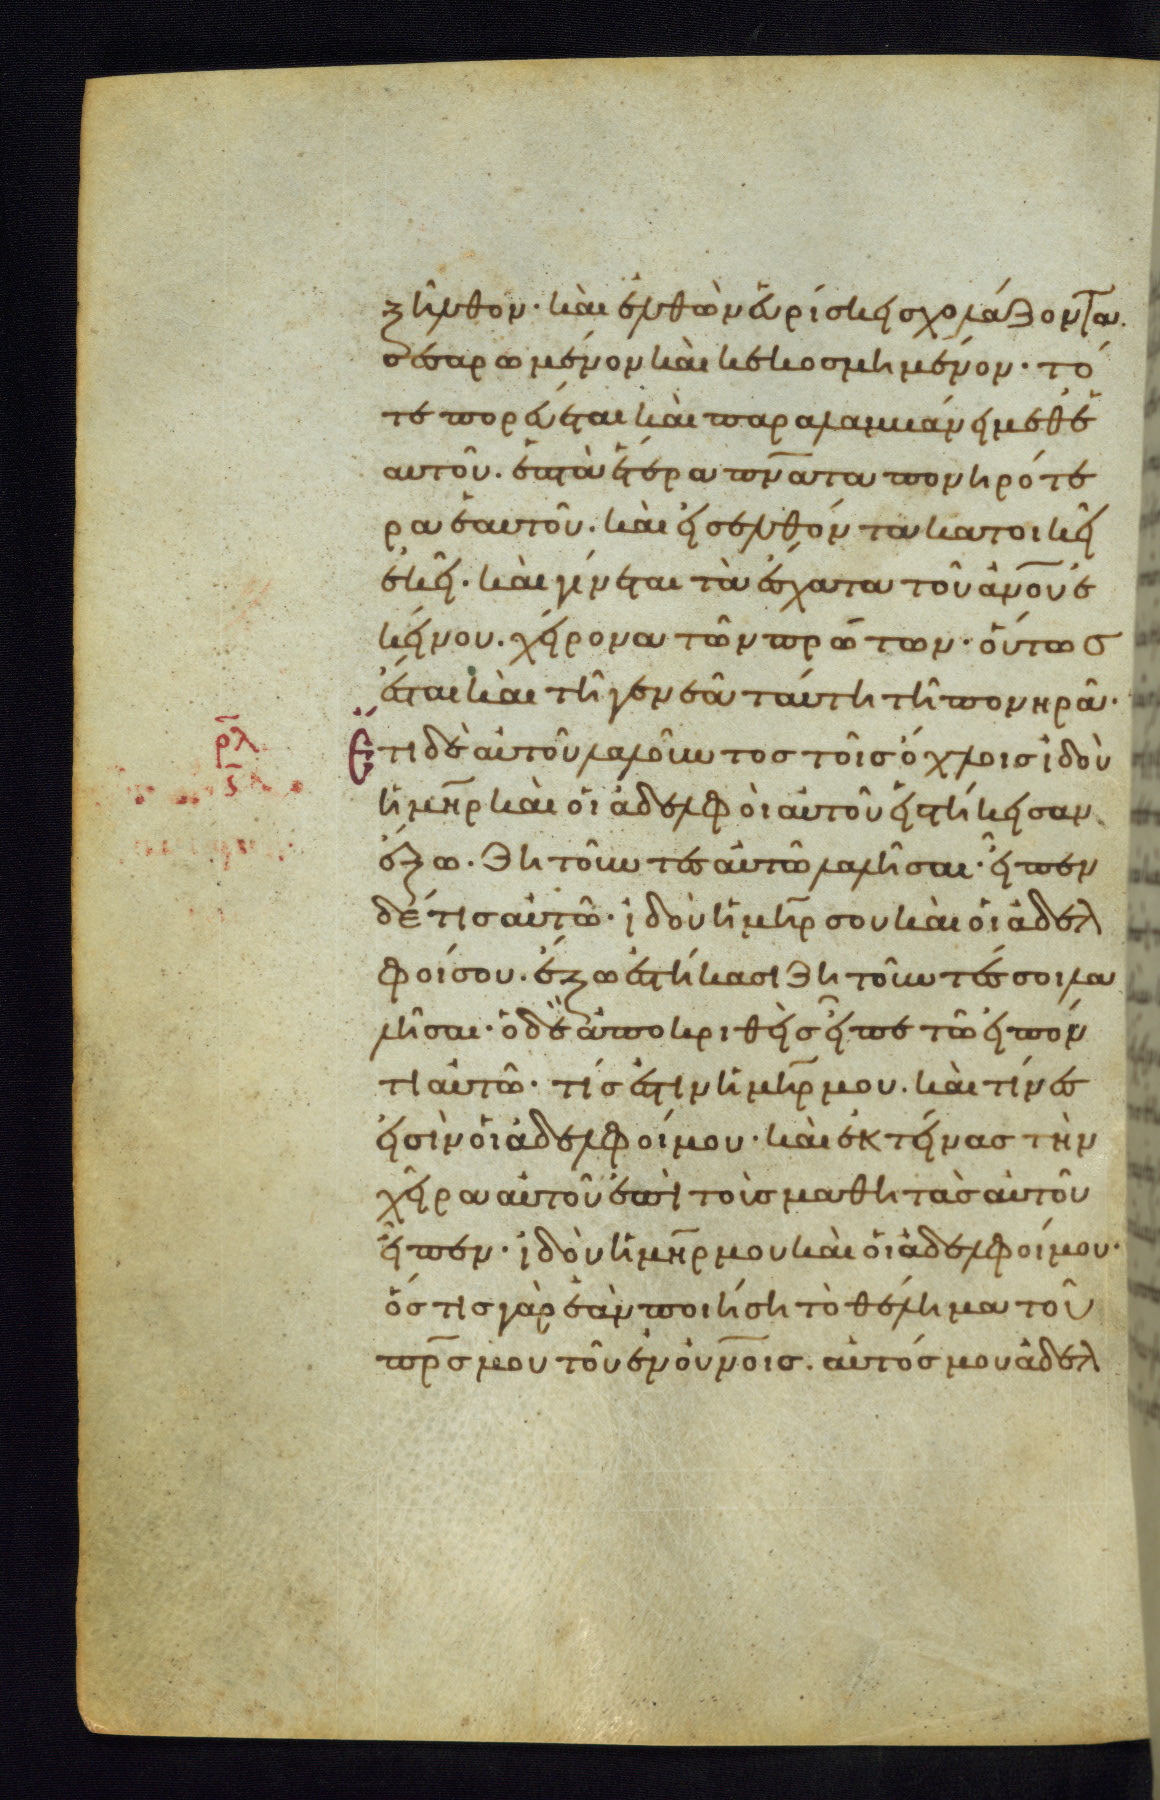 ξῆλθον· καὶ ἐλθὼν εὑρίσκει σχολάζοντα.
σεσαρωμένον καὶ κεκοσμημένον· τό
τε πορεύεται καὶ παραλαμβάνει μεθ' ἑ
αυτοῦ. ἑπτὰ ἕτερα πν̅ατα πονηρότε
ρα ἑαυτοῦ. καὶ εἰσελθόντα κατοικεῖ
ἐκεῖ. καὶ γίνεται τὰ ἔσχατα τοῦ ἀν̅ου ἐ
κείνου. χείρονα τῶν πρώτων· οὕτως
ἔσται καὶ τῆ γενεᾶ ταύτη τῆ πονηρᾶ·
ρ̅λ
ς̅
Ἔτι δὲ αὐτοῦ λαλοῦντος τοῖς ὄχλοις ἰδοὺ
ἡ μη̅ρ καὶ οἱ ἀδελφοὶ αὐτοῦ εἱστήκεισαν
ἔξω. ζητοῦντες αὐτῶ λαλῆσαι· εἶπεν
δέ τις αὐτῶ· ἰδοὺ ἡ μη̅ρ σου καὶ οἱ ἀδελ
φοί σου. ἔξω ἑστήκασι ζητοῦντές σοι λα
λῆσαι· ὁ δὲ ἀποκριθεὶς εἶπε τῶ εἰπόν
τι αὐτῶ· τίς ἐστιν ἡ μη̅ρ μου. καὶ τίνες
εἰσὶν οἱ ἀδελφοί μου· καὶ ἐκτείνας τὴν
χεῖρα αὐτοῦ ἐπὶ τοὺς μαθητὰς αὐτοῦ
εἶπεν· ἰδοὺ ἡ μη̅ρ μου καὶ οἱ ἀδελφοί μου·
ὅστις γὰρ ἐὰν ποιήση τὸ θέλημα τοῦ
πρ̅ς μου τοῦ ἐν οὐν̅οις. αὐτός μου ἀδελ